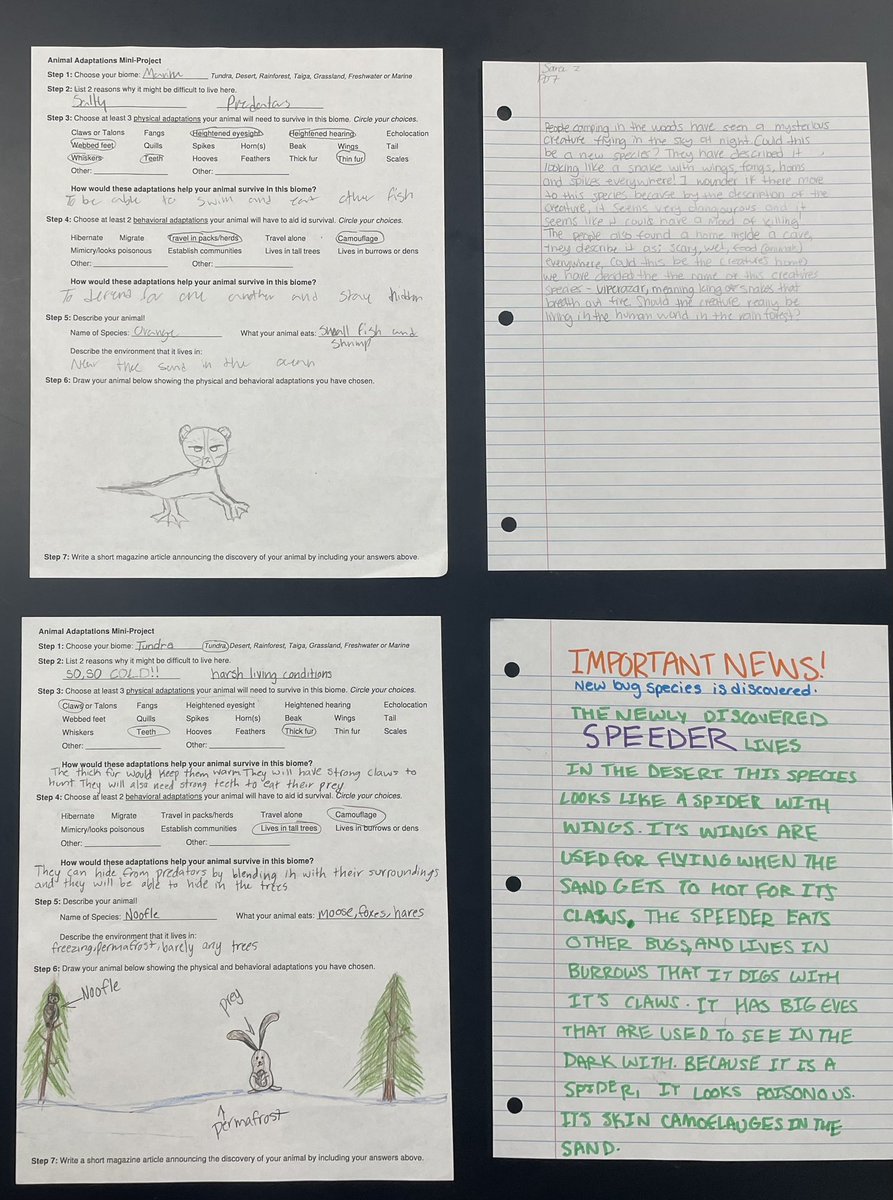 Animal Adaptations Mini-Project
Step 1: Choose your biome: Marine Tundra, Desert, Rainforest, Taiga, Grassland, Freshwater or Marine
Step 2: List 2 reasons why it might be difficult to live here.
Salty Predators
Step 3: Choose at least 3 physical adaptations your animal will need to survive in this biome. Circle your choices.
Claws or Talons Fangs Heightened eyesight Heightened hearing Echolocation
Webbed feet Quills Spikes Horn(s) Beak Wings Tail
Whiskers Teeth Hooves Feathers Thick fur Thin fur Scales
Other: Other:
How would these adaptations help your animal survive in this biome?
To be able to swim and eat other fish
Step 4: Choose at least 2 behavioral adaptations your animal will have to aid id survival. Circle your choices.
Hibernate Migrate Travel in packs/herds Travel alone Camouflage
Mimicry/looks poisonous Establish communities Lives in tall trees Lives in burrows or dens
Other: Other:
How would these adaptations help your animal survive in this biome?
To defend for one another and stay hidden
Step 5: Describe your animal!
Name of Species: Orange What your animal eats: Small fish and
shrimp
Describe the environment that it lives in:
Near the sand in the ocean
Step 6: Draw your animal below showing the physical and behavioral adaptations you have chosen.
Step 7: Write a short magazine article announcing the discovery of your animal by including your answers above.
Sara Z
PD7
People camping in the woods have seen a mysterious
creature flying in the sky at night. Could this
be a new species? They have described it
looking like a snake with wings, fangs, horns
and spikes everywhere! I wounder if there more
to this species because by the description of the
creature, it seems very dangourous and it
seems like it could have a mood of killing.
The people also found a home inside a cave,
they describe it as: scary, wet, food (animals)
everywhere, could this be the creatures home?
we have decided the the name of this creatures
species - viperozar, meaning king of snakes that
breath out fire. Should the creature really be
living in the human world in the rain forest?
Animal Adaptations Mini-Project
Step 1: Choose your biome: Tundra Tundra, Desert, Rainforest, Taiga, Grassland, Freshwater or Marine
Step 2: List 2 reasons why it might be difficult to live here.
SO, SO COLD!! harsh living conditions
Step 3: Choose at least 3 physical adaptations your animal will need to survive in this biome. Circle your choices.
Claws or Talons Fangs Heightened eyesight Heightened hearing Echolocation
Webbed feet Quills Spikes Horn(s) Beak Wings Tail
Whiskers Teeth Hooves Feathers Thick fur Thin fur Scales
Other: Other:
How would these adaptations help your animal survive in this biome?
The thick fur would keep them warm They will have strong claws to
hunt They will also need strong teeth to eat their prey
Step 4: Choose at least 2 behavioral adaptations your animal will have to aid id survival. Circle your choices.
Hibernate Migrate Travel in packs/herds Travel alone Camouflage
Mimicry/looks poisonous Establish communities Lives in tall trees Lives in burrows or dens
Other: Other:
How would these adaptations help your animal survive in this biome?
They can hide from predators by blending in with their surroundings
and they will be able to hide in the trees
Step 5: Describe your animal!
Name of Species: Noofle What your animal eats: moose, foxes, hares
Describe the environment that it lives in:
freezing, permafrost, barely any trees
Step 6: Draw your animal below showing the physical and behavioral adaptations you have chosen.
Noofle
prey
permafrost
Step 7: Write a short magazine article announcing the discovery of your animal by including your answers above.
IMPORTANT NEWS!
New bug species is discovered.
THE NEWLY DISCOVERED
SPEEDER LIVES
IN THE DESERT. THIS SPECIES
LOOKS LIKE A SPIDER WITH
WINGS. IT'S WINGS ARE
USED FOR FLYING WHEN THE
SAND GETS TO HOT FOR ITS
CLAWS. THE SPEEDER EATS
OTHER BUGS, AND LIVES IN
BURROWS THAT IT DIGS WITH
IT'S CLAWS. IT HAS BIG EYES
THAT ARE USED TO SEE IN THE
DARK WITH. BECAUSE IT IS A
SPIDER, IT LOOKS POISONOUS.
ITS SKIN CAMOELAUGES IN THE
SAND.